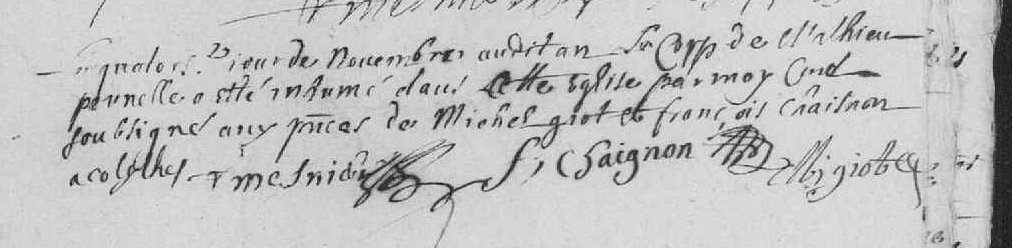 quators.^e jour de Novembre audit an Le Corps de Mathieu
prunelle a esté inhumé dans cette Eglise par moy Curé
soubsigné aux pñces de Michel giot et françois Chaisnon
acolythes. mesnier f, Chaignon M giot